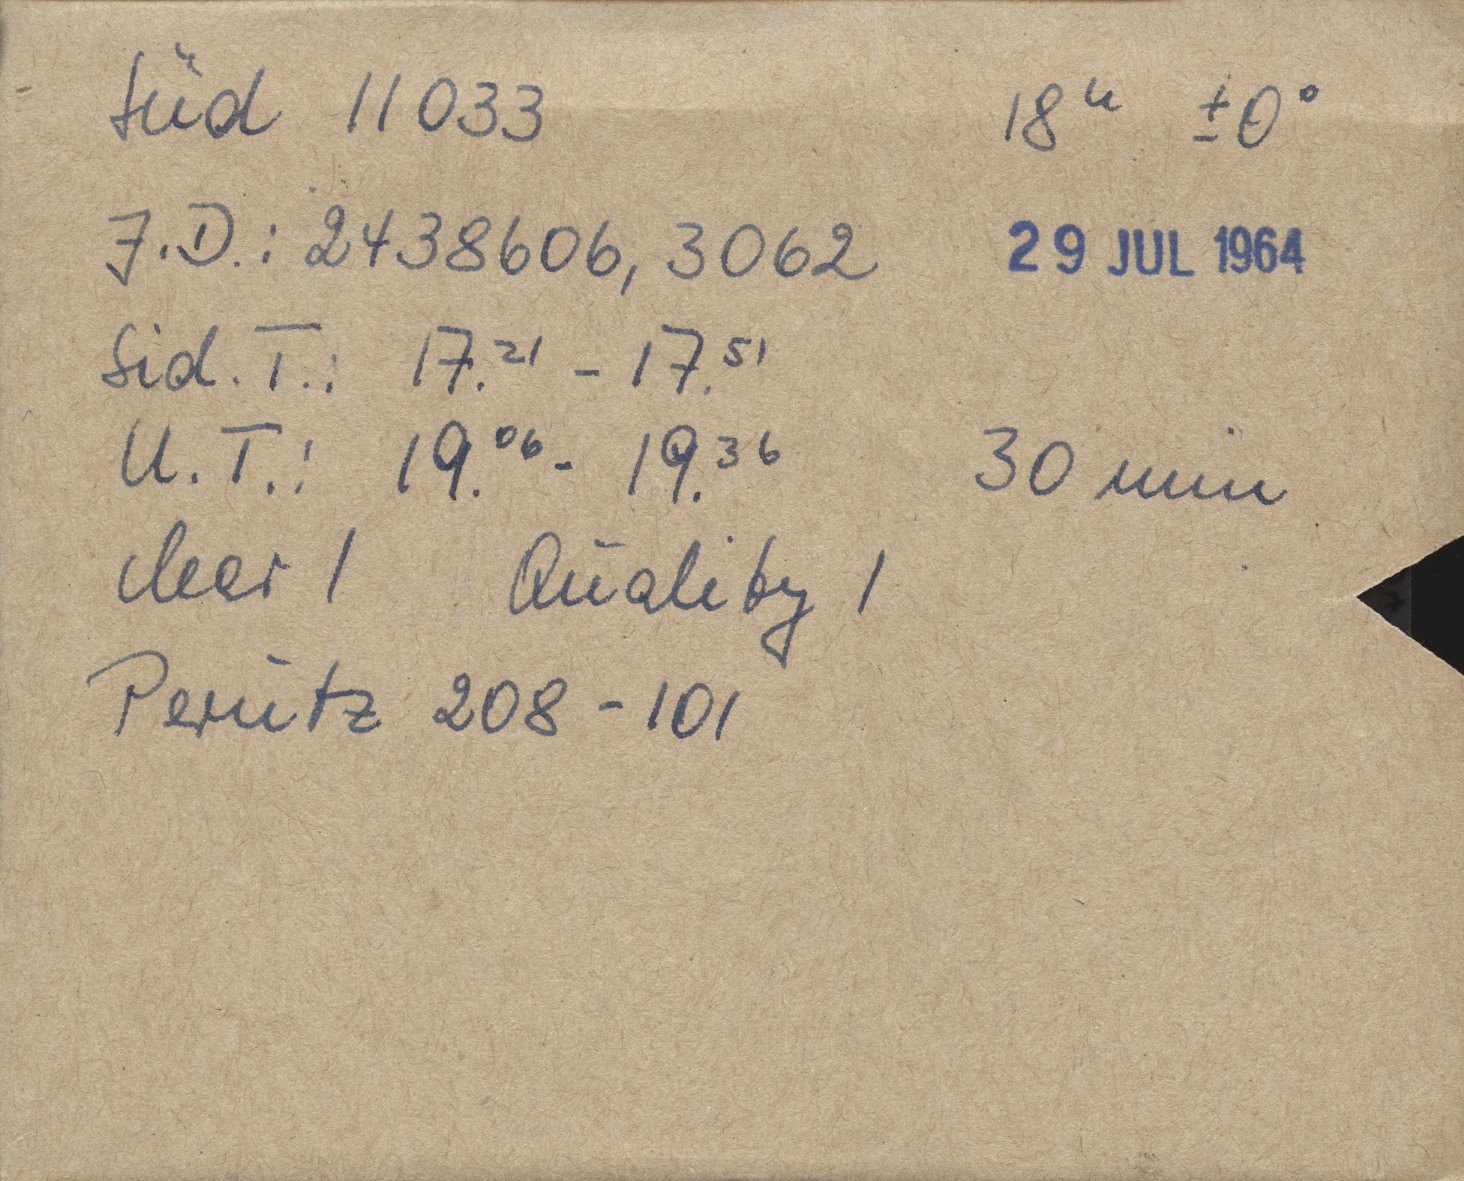 Süd 11033 18ʰ ±0°
J.D.: 2438606,3062 29 JUL 1964
Sid.T.: 17.²¹ - 17.⁵¹
U.T.: 19.⁰⁶ - 19.³⁶ 30 min
clear 1 Quality 1
Perutz 208-101